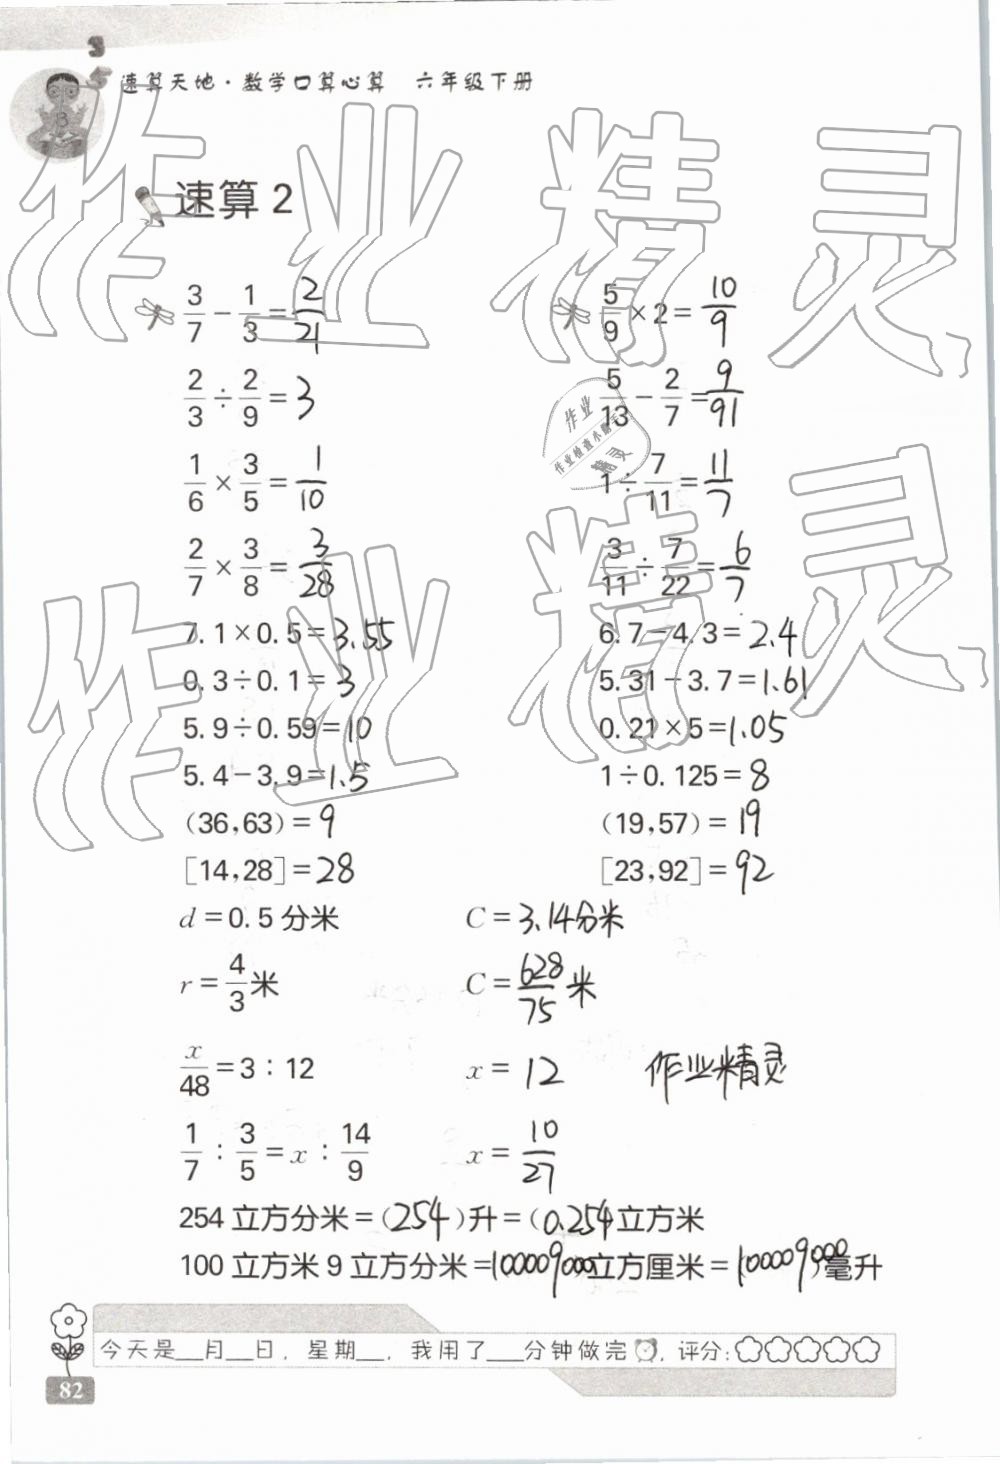 速算天地·数学口算心算 六年级下册
速算 2
3/7 − 1/3 = 2/21 5/9 × 2 = 10/9
2/3 ÷ 2/9 = 3 5/13 − 2/7 = 9/91
1/6 × 3/5 = 1/10 1 ÷ 7/11 = 11/7
2/7 × 3/8 = 3/28 3/11 ÷ 7/22 = 6/7
7.1×0.5=3.55 6.7−4.3=2.4
0.3÷0.1=3 5.31−3.7=1.61
5.9÷0.59=10 0.21×5=1.05
5.4−3.9=1.5 1÷0.125=8
(36,63)=9 (19,57)=19
[14,28]=28 [23,92]=92
d=0.5分米 C=3.14分米
r=4/3米 C=628/75米
x/48=3:12 x=12 作业精灵
1/7:3/5=x:14/9 x=10/27
254立方分米=(254)升=(0.254立方米
100立方米9立方分米=100009000立方厘米=(100009000)毫升
今天是__月__日，星期__，我用了___分钟做完，评分：
82
作业精灵
作业精灵
作业
作业检查小助手
精灵